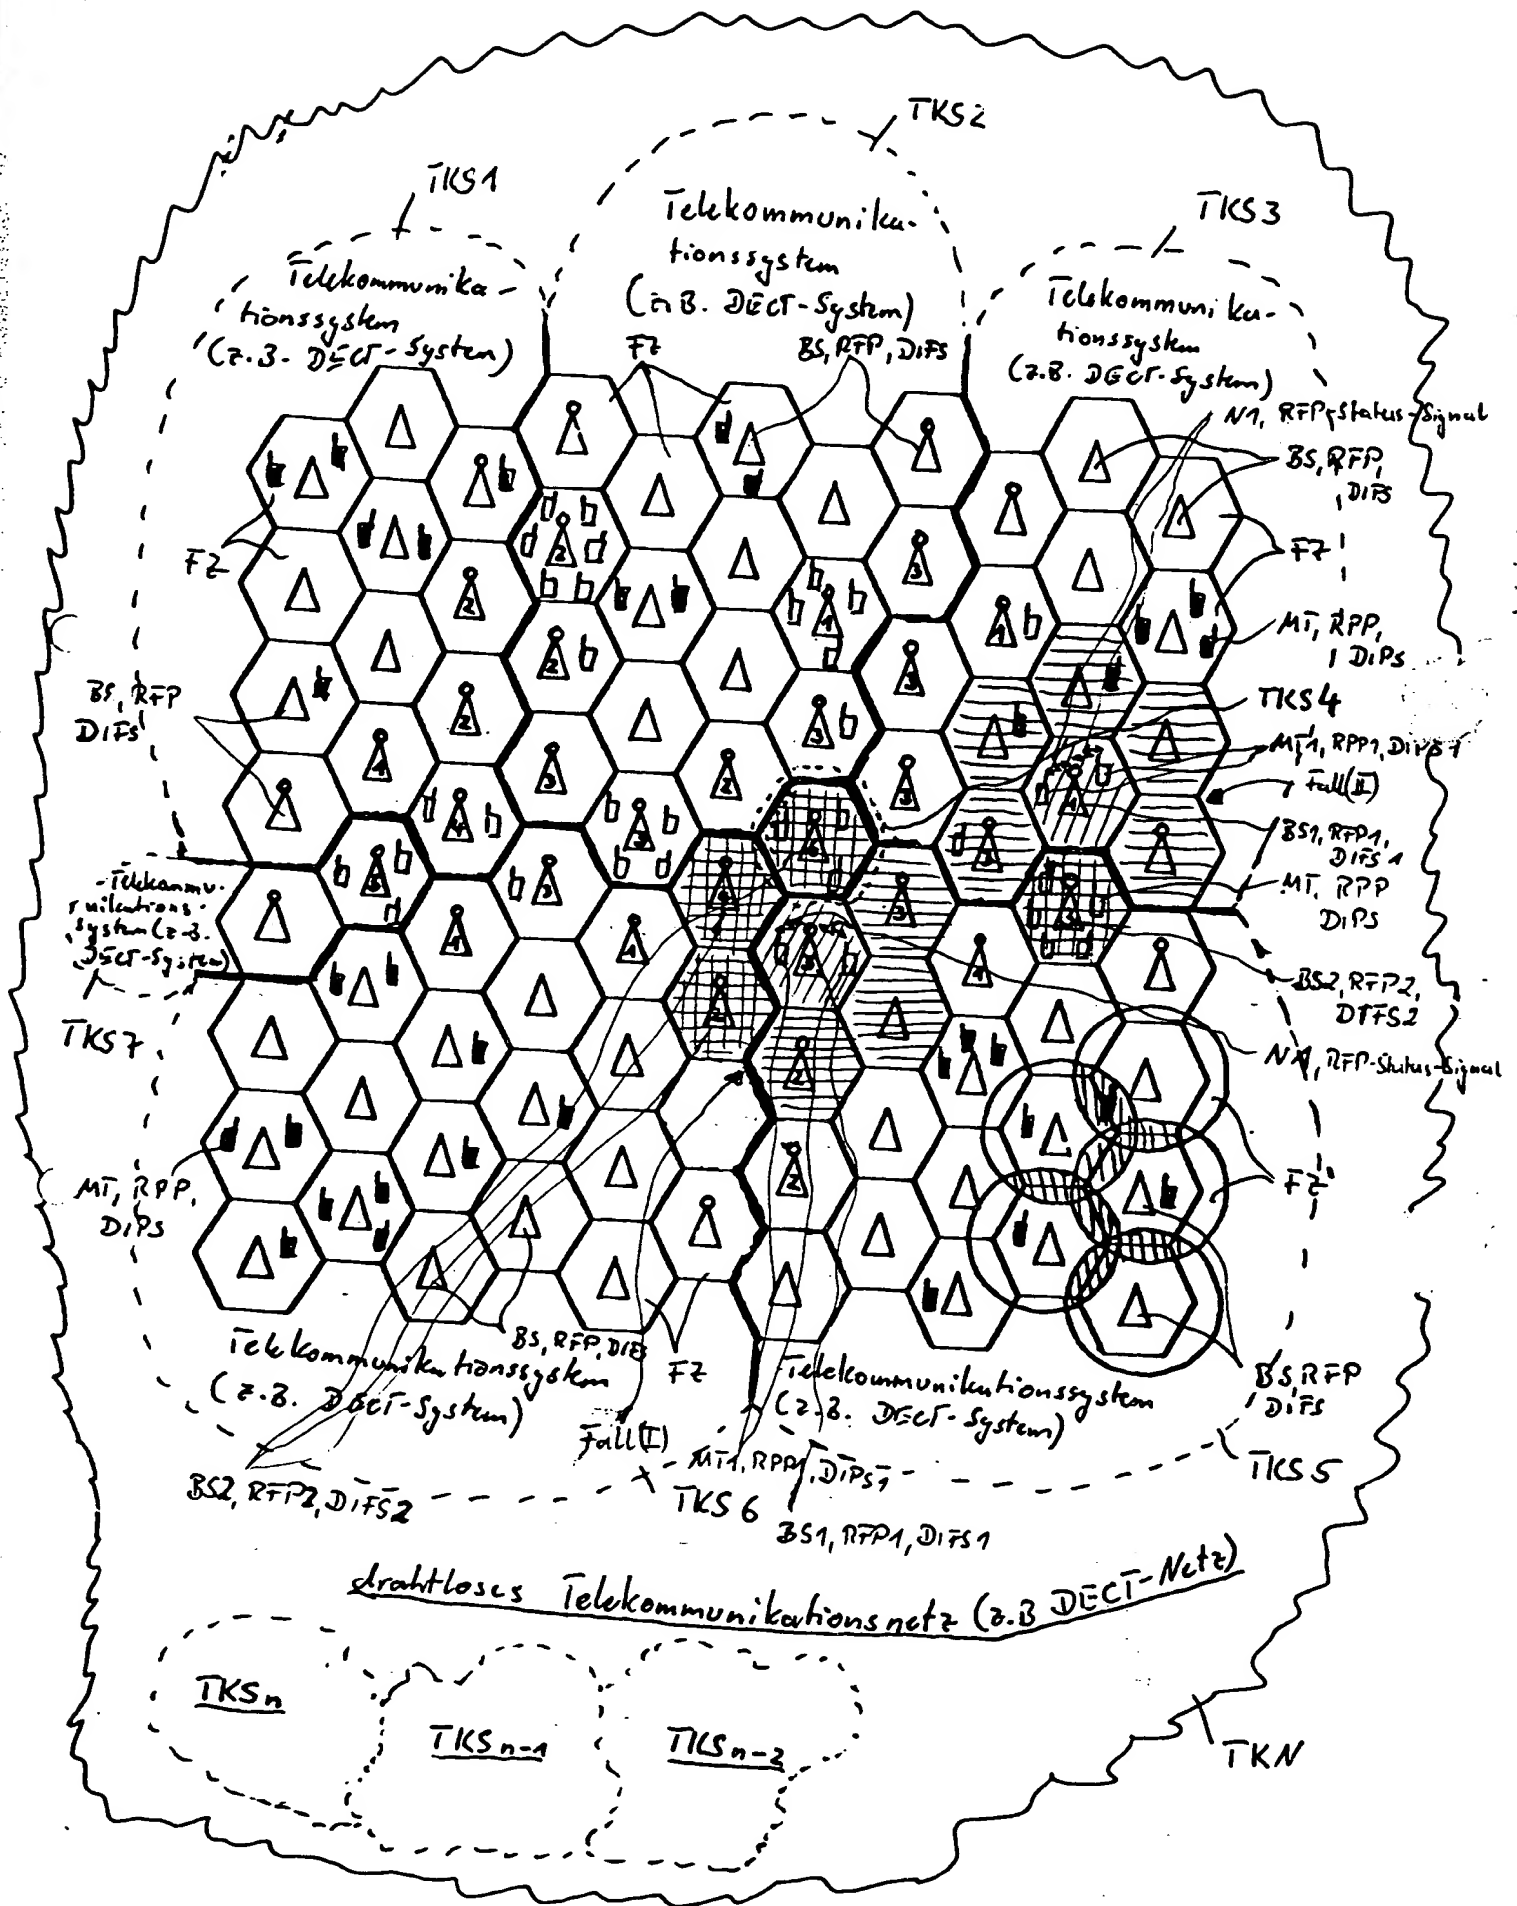 TKS2
TKS1
TKS3
Telekommunika-
tionssystem
(z.B. DECT-System)
Telekommunika-
tionssystem
(z.B. DECT-System)
Telekommunika-
tionssystem
(z.B. DECT-System)
FZ
BS, RFP, DIFS
N1, RFP-Status-Signal
BS, RFP,
DIFS
FZ
FZ
MT, RPP,
DIPS
BS, RFP
DIFS
TKS4
MT1, RPP1, DIPS1
Fall(II)
BS1, RFP1,
DIFS1
MT, RPP
DIPS
-Telekommu-
nikations-
system (z.B.
DECT-System)
BS2, RFP2,
DIFS2
TKS7
N1, RFP-Status-Signal
MT, RPP,
DIPS
FZ'
BS, RFP, DIFS
Telekommunikationssystem
(z.B. DECT-System)
FZ
Telekommunikationssystem
(z.B. DECT-System)
BS, RFP
DIFS
Fall(I)
MT1, RPP1, DIPS1
TKS5
BS2, RFP2, DIFS2
TKS6
BS1, RFP1, DIFS1
drahtloses Telekommunikationsnetz (z.B DECT-Netz)
TKSn
TKSn-1
TKSn-2
TKN